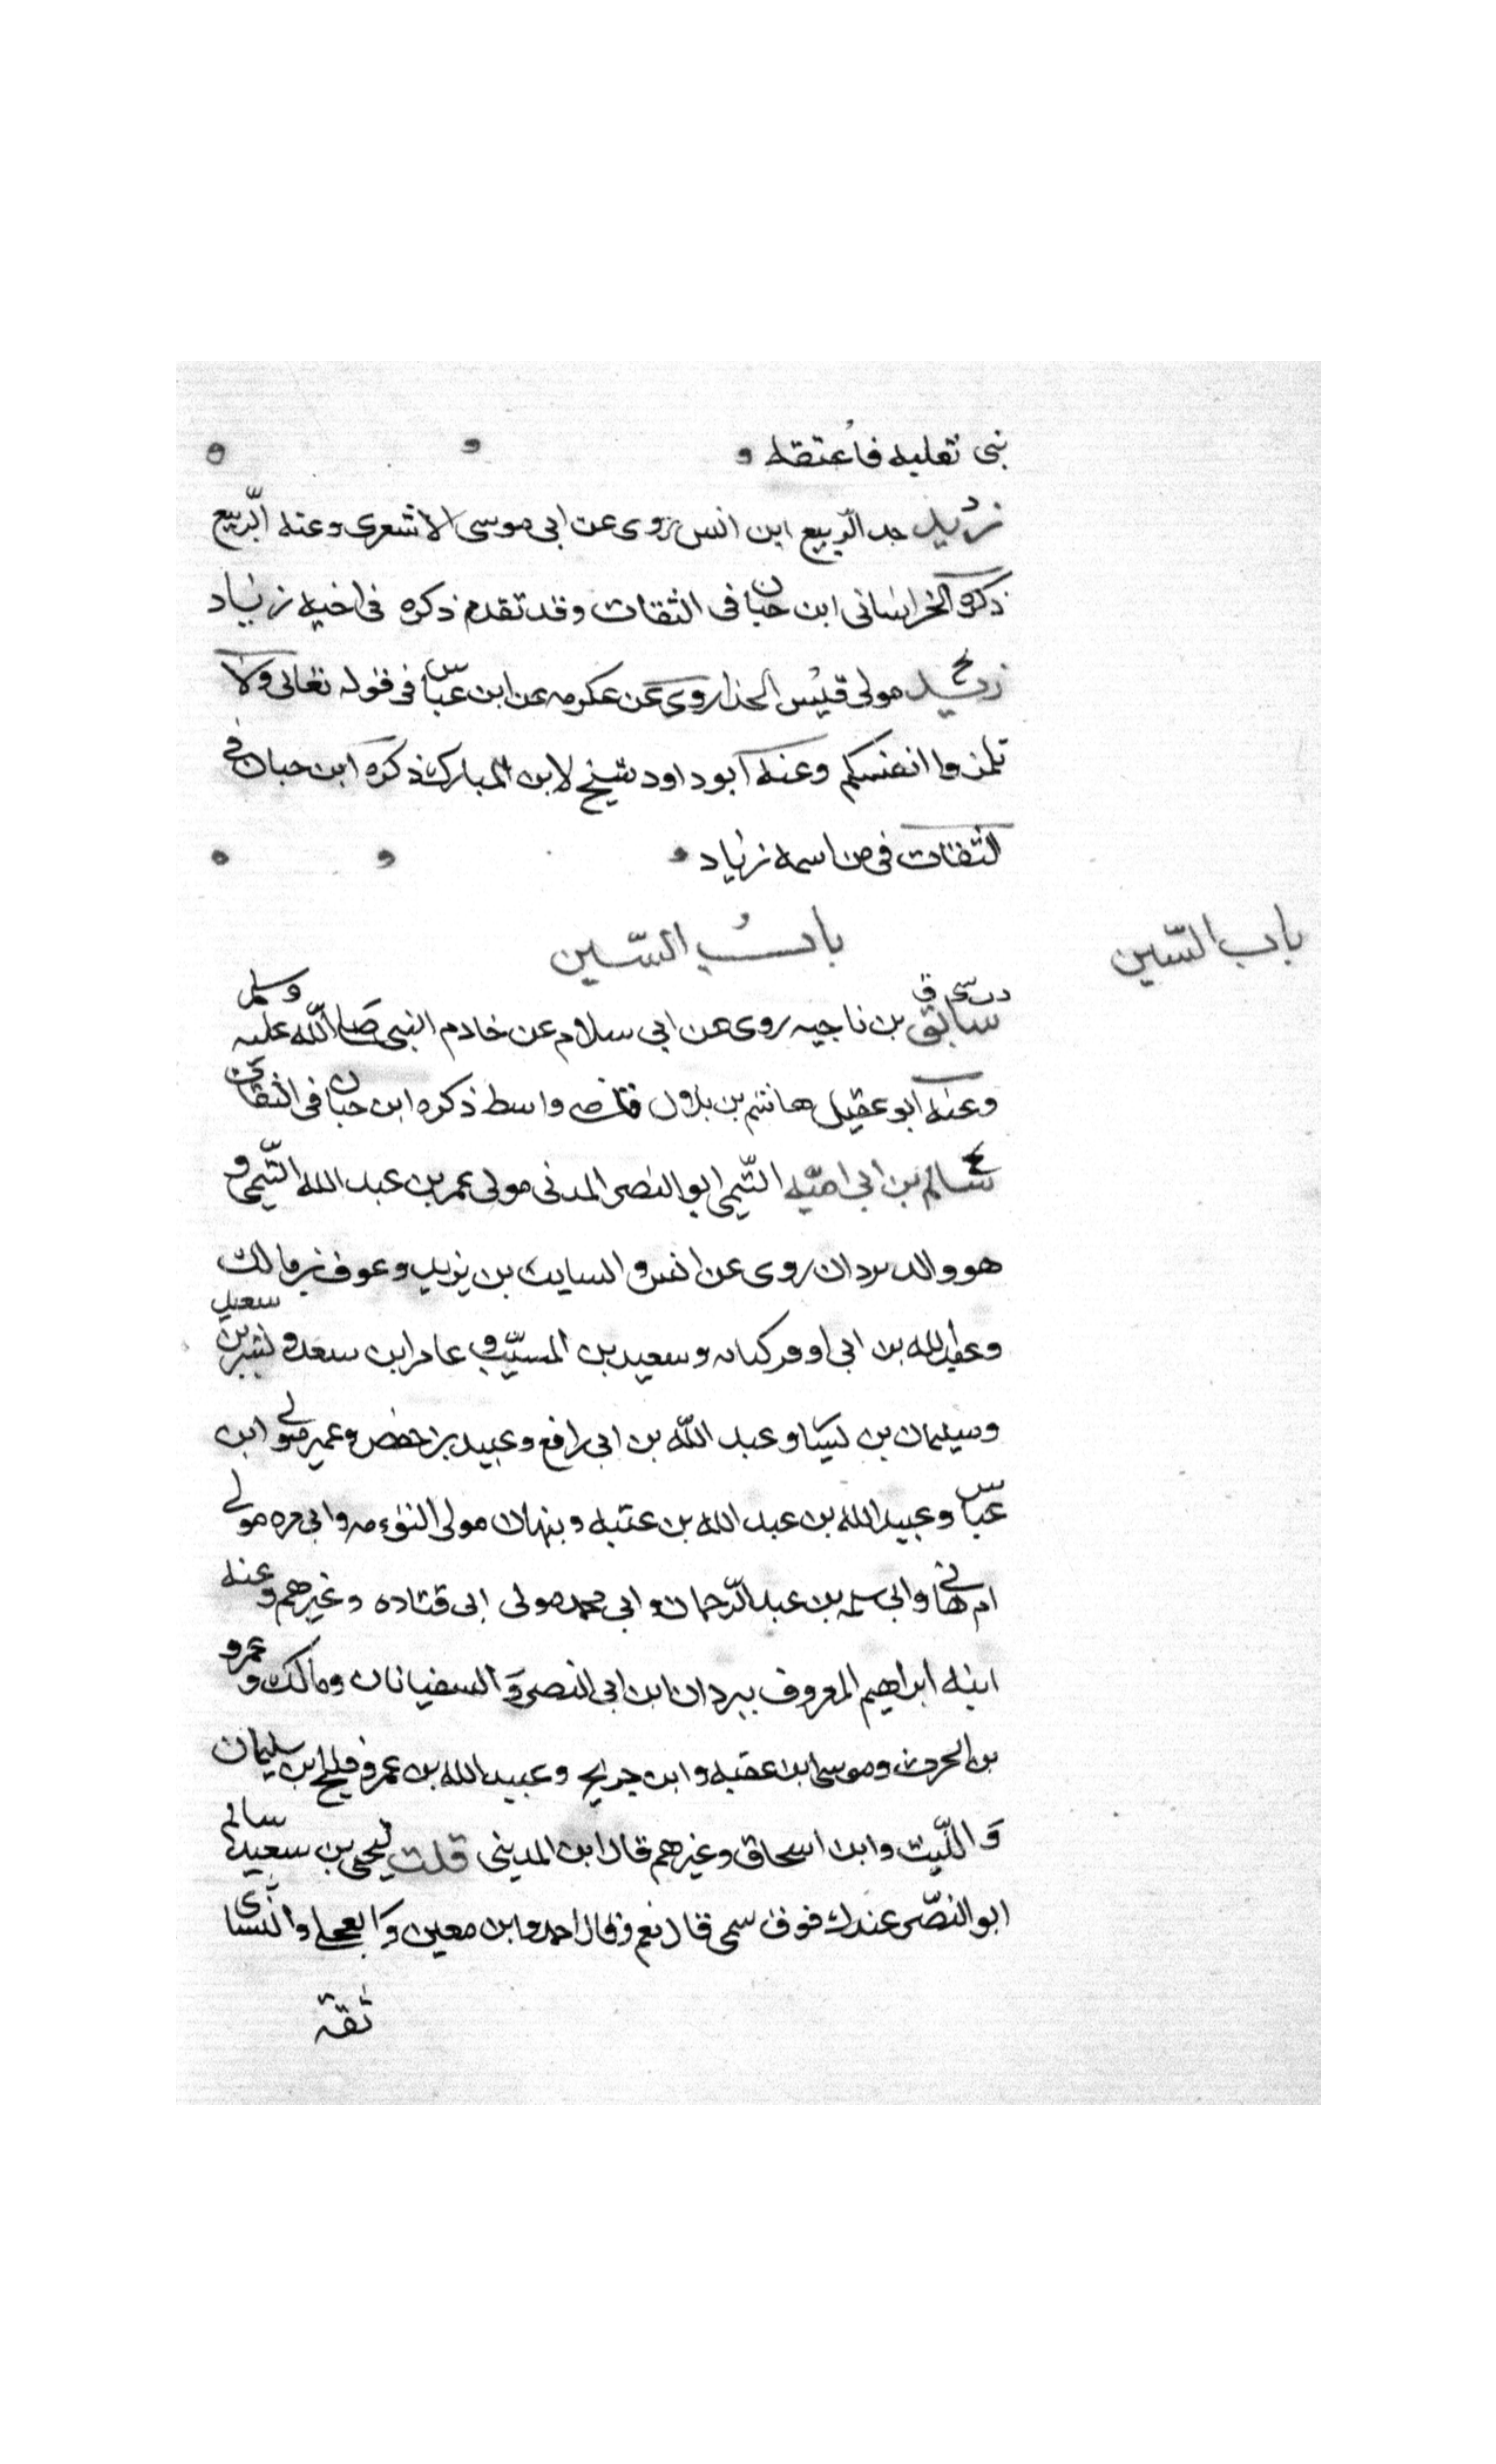 بنى تعلبه فاعتقه
زيد جد الربيع ابن انس روى عن ابى موسى الاشعرى وعنه الربيع
ذكره الخراسانى ابن حبان فى الثقات وقد تقدم ذكره فى اخيه زياد
زيد مولى قيس الحذا روى عن عكرمه عن ابن عباس فى قوله تعالى ولا
تلمزوا انفسكم وعنه ابو داود شيخ لابن المبارك ذكره ابن حبان فى
الثقات فى من اسمه زياد
باب السّين
بابُ السّين
سابق بن ناجيه روى عن ابى سلام عن خادم النبى صلى اللّه عليه وسلم
وعنه ابو عقيل هاشم بن بلال قاضى واسط ذكره ابن حبان فى الثقات
سالم بن ابى اميّه التّيمى ابو النضر المدنى مولى عمر بن عبد الله التّيمى و
هو والد بردان روى عن انس والسايب بن يزيد وعوف بن مالك
وعبد الله بن ابى اوفى كتابه وسعيد بن المسيّب وعامر ابن سعد وبشر بن سعيد
وسليمان بن يسار وعبد اللّه بن ابى رافع وعبيد بن حفص وعمير مولى ابن
عباس وعبيد الله بن عبد الله بن عتبه ونبهان مولى التوءمه وابى مره مولى
ام هانى وابى سلمه بن عبد الرّحمان وابى محمد مولى ابى قتاده وغيرهم وعنه
ابنه ابراهيم المعروف ببردان ابن ابى النضر وَالسفيانان ومالك وعمرو
بن الحرث وموسى ابن عقبه وابن جريج وعبيد الله بن عمر وفليح ابن سليمان
وَاللّيث وابن اسحاق وغيرهم قال ابن المدينى قلت ليحيى بن سعيد سالم
ابو النضر عندك فوق سمى قال نعم وقال احمد وابن معين وَالعجلى والنّسائى
ثقة